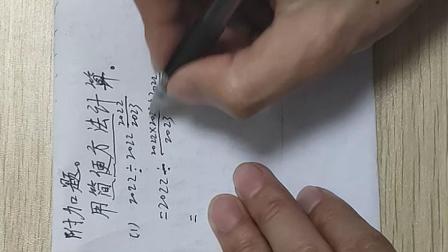 附加题。
用简便方法计算。
(1) 2022÷2022 2022/2023
=2022÷ 2022×202 +2022/2023
=